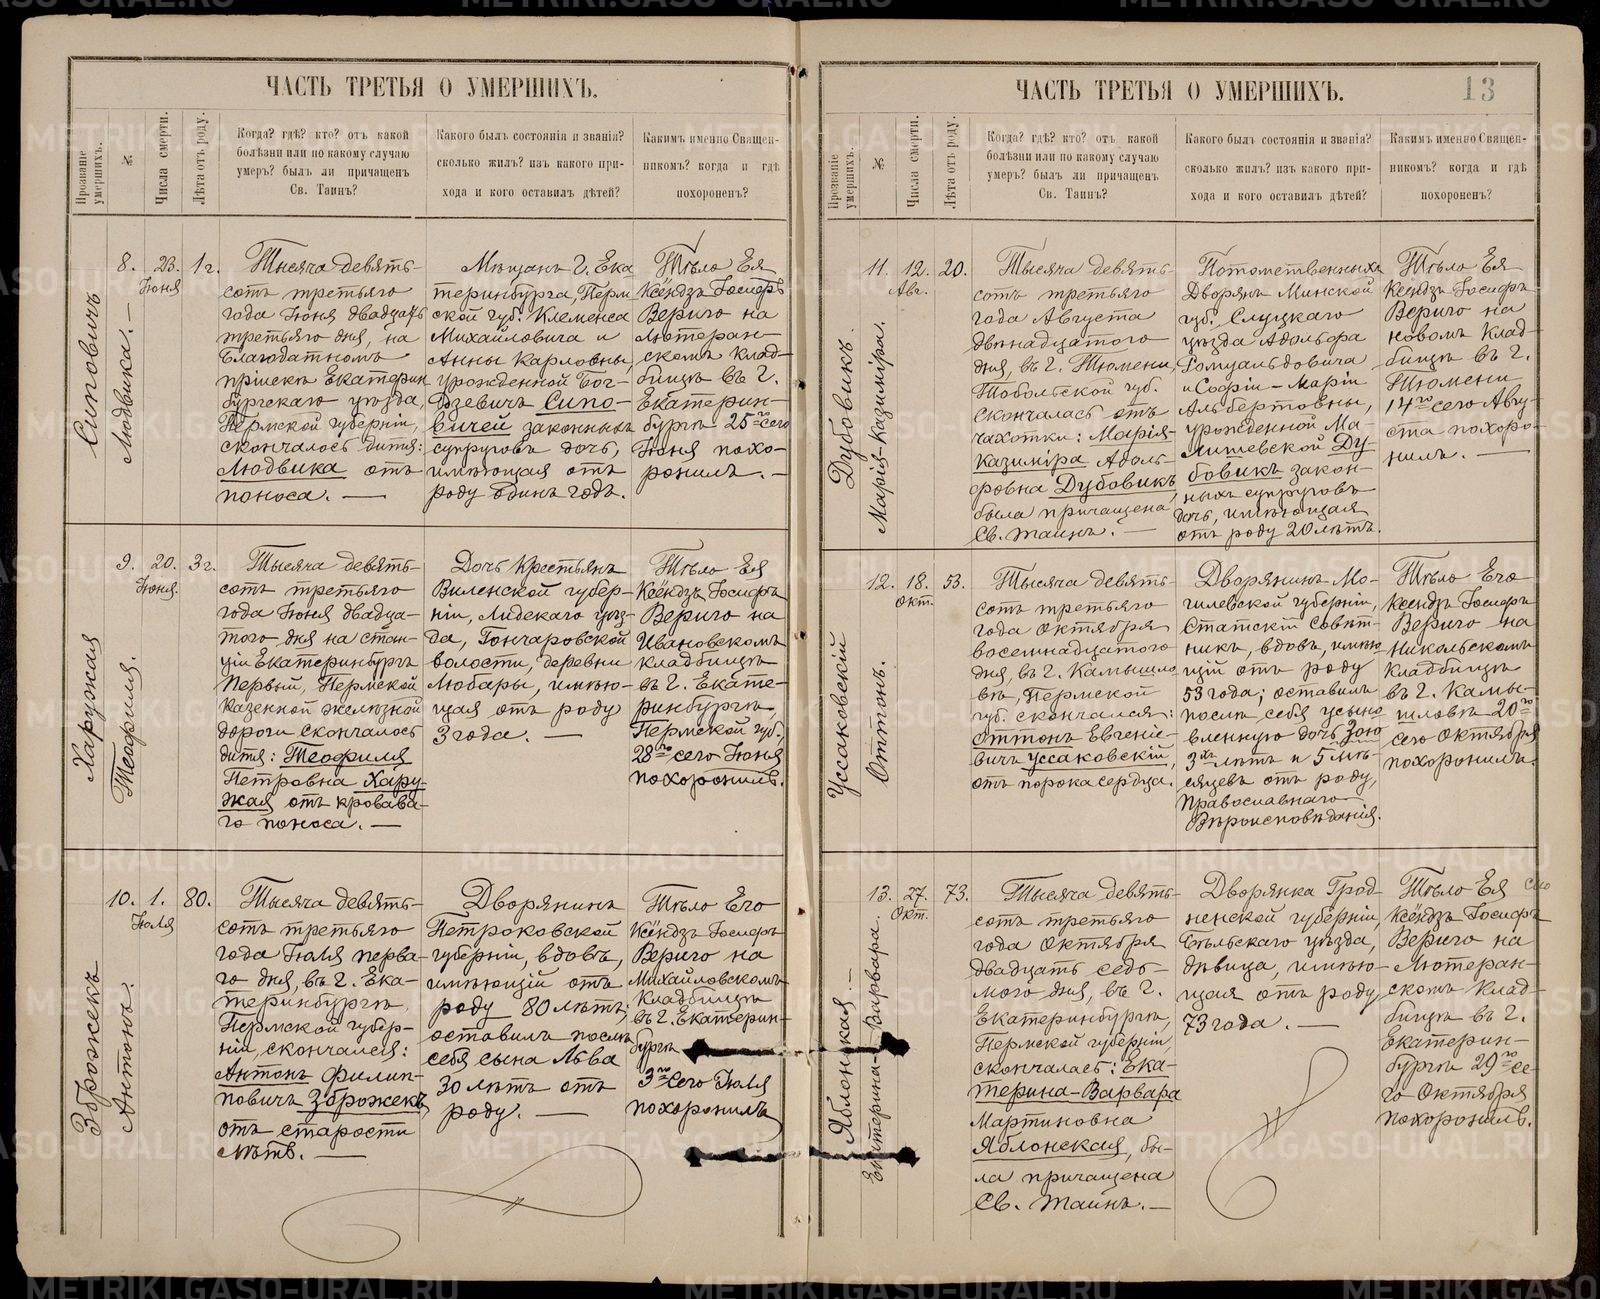 ЧАСТЬ ТРЕТЬЯ О УМЕРШИХЪ.
Прозваніе умершихъ.
№
Числа смерти.
Лѣта отъ роду.
Когда? гдѣ? кто? отъ какой
болѣзни или по какому случаю
умеръ? былъ ли причащенъ
Св. Таинъ?
Какого былъ состоянія и званія?
сколько жилъ? изъ какого при-
хода и кого оставилъ дѣтей?
Какимъ именно Священ-
никомъ? когда и гдѣ
похороненъ?
Сиповичъ
Людвика. —
8.
23.
Іюня
1 г.
Тысяча девять-
сотъ третьяго
года Іюня двадцать
третьяго дня, на
Благодатномъ
пріискѣ Екатерин
бургскаго уѣзда,
Пермской губерніи,
скончалось дитя:
Людвика отъ
поноса. —
Мѣщанъ г. Ека
теринбурга, Перм
ской губ. Клеменса
Михайловича и
Анны Карловны,
урожденной Бог-
дзевичъ Сипо-
вичей законныхъ
супруговъ дочь,
имѣющая отъ
роду одинъ годъ.
Тѣло Ея
Ксёндзъ Іосифъ
Вериго на
Лютеран-
скомъ клад-
бищѣ въ г.
Екатерин-
бургѣ 25го сего
Іюня похо-
ронилъ. —
Харужая
Теофилія.
9.
20.
Іюня.
3 г.
Тысяча девять-
сотъ третьяго
года Іюня двадца-
того дня на стан-
ціи Екатеринбургъ
Первый, Пермской
казенной желѣзной
дороги скончалось
дитя: Теофилія
Петровна Хару-
жая отъ кровава-
го поноса. —
Дочь крестьянъ
Виленской губер-
ніи, Лидскаго уѣз-
да, Гончаровской
волости, деревни
Любары, имѣю-
щая отъ роду
3 года. —
Тѣло Ея
Ксёндзъ Іосифъ
Вериго на
Ивановскомъ
кладбищѣ
въ г. Екате-
ринбургѣ,
Пермской губ.
28го сего Іюня
похоронилъ.
Зброжекъ
Антонъ.
10.
1.
Іюля
80.
Тысяча девять-
сотъ третьяго
года Іюля перва-
го дня, въ г. Ека-
теринбургѣ,
Пермской губер-
ніи, скончался:
Антонъ Филип-
повичъ Зброжекъ,
отъ старости
лѣтъ. —
Дворянинъ
Петроковской
губерніи, вдовъ,
имѣющій отъ
роду 80 лѣтъ;
оставилъ послѣ
себя сына Льва
30 лѣтъ отъ
роду. —
Тѣло Его
Ксёндзъ Іосифъ
Вериго на
Михайловскомъ
кладбищѣ
въ г. Екатерин-
бургѣ
3го сего Іюля
похоронилъ
ЧАСТЬ ТРЕТЬЯ О УМЕРШИХЪ.
13
Прозваніе умершихъ.
№
Числа смерти.
Лѣта отъ роду.
Когда? гдѣ? кто? отъ какой
болѣзни или по какому случаю
умеръ? былъ ли причащенъ
Св. Таинъ?
Какого былъ состоянія и званія?
сколько жилъ? изъ какого при-
хода и кого оставилъ дѣтей?
Какимъ именно Священ-
никомъ? когда и гдѣ
похороненъ?
Дубовикъ.
Марія-Казиміра.
11.
12.
Авг.
20.
Тысяча девять
сотъ третьяго
года Августа
двѣнадцатого
дня, въ г. Тюмени,
Тобольской губ.
скончалась отъ
чахотки: Марія-
Казиміра Адоль-
фовна Дубовикъ,
была причащена
Св. Таинъ. —
Потомственныхъ
Дворянъ Минской
губ., Слуцкаго
уѣзда Адольфа
Ромуальдовича
и Софіи-Маріи
Альбертовны,
урожденной Ма-
лишевской Ду-
бовикъ закон-
ныхъ супруговъ
дочь, имѣющая
отъ роду 20 лѣтъ.
Тѣло Ея
Ксендзъ Іосифъ
Вериго на
новомъ клад-
бищѣ въ г.
Тюмени
14го сего Авгу-
ста похоро-
нилъ. —
Уссаковскій
Оттонъ.
12.
18.
Окт.
53.
Тысяча девять
сотъ третьяго
года Октября
восемнадцатого
дня, въ г. Камышло
вѣ, Пермской
губ. скончался:
Оттонъ Евгеніе-
вичъ Уссаковскій,
отъ порока сердца.
Дворянинъ Мо-
гилевской губерніи,
Статскій Совѣт-
никъ, вдовъ, имѣю
щій отъ роду
53 года; оставилъ
послѣ себя усыно
вленную дочь Зою
3хъ лѣтъ и 5 мѣ-
сяцевъ отъ роду,
Православнаго
Вѣроисповѣданія.
Тѣло Его
Ксендзъ Іосифъ
Вериго на
Никольскомъ
кладбищѣ
въ г. Камы-
шловѣ 20го
сего Октября
похоронилъ.
Яблонская. —
Екатерина-Варвара.
13.
27.
Окт.
73.
Тысяча девять-
сотъ третьяго
года Октября
двадцать седь-
мого дня, въ г.
Екатеринбургѣ,
Пермской губерніи
скончалась: Ека-
терина-Варвара
Мартиновна
Яблонская, бы-
ла причащена
Св. Таинъ. —
Дворянка Грод-
ненской губерніи,
Бѣльскаго уѣзда,
дѣвица, имѣю-
щая отъ роду
73 года. —
Тѣло Ея
Ксёндзъ Іосифъ
Вериго на
Лютеран-
скомъ клад-
бищѣ въ г.
Екатерин-
бургѣ 29го се-
го Октября
похоронилъ.
METRIKI.GASO-URAL.RU